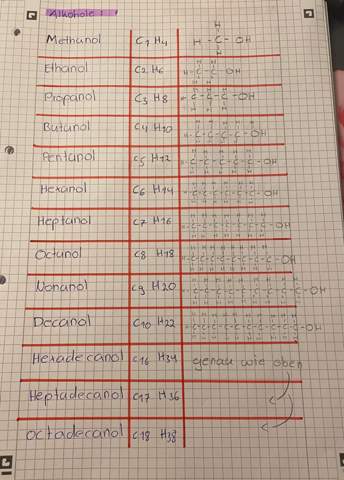 Alkohole:
Methanol C1 H4 H-C-OH H H
Ethanol C2 H6 H-C-C OH
Propanol C3 H8 C-C-C-OH
Butanol C4 H10 C-C-C-C-OH
Pentanol C5 H12 C-C-C-C-C-OH
Hexanol C6 H14 C-C-C-C-C-C-OH
Heptanol C7 H16 C-C-C-C-C-C-C-OH
Octanol C8 H18 C-C-C-C-C-C-C-C-OH
Nonanol C9 H20 C-C-C-C-C-C-C-C-C-OH
Decanol C10 H22 C-C-C-C-C-C-C-C-C-C-OH
Hexadecanol C16 H34 genau wie oben
Heptadecanol C17 H36
Octadecanol C18 H38